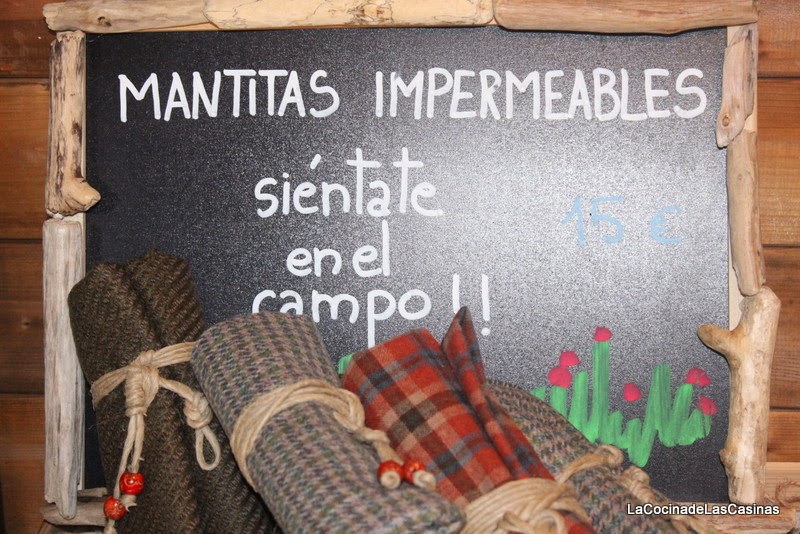 MANTITAS IMPERMEABLES
siéntate
en el
campo!!
15 €
LaCocinadeLasCasinas